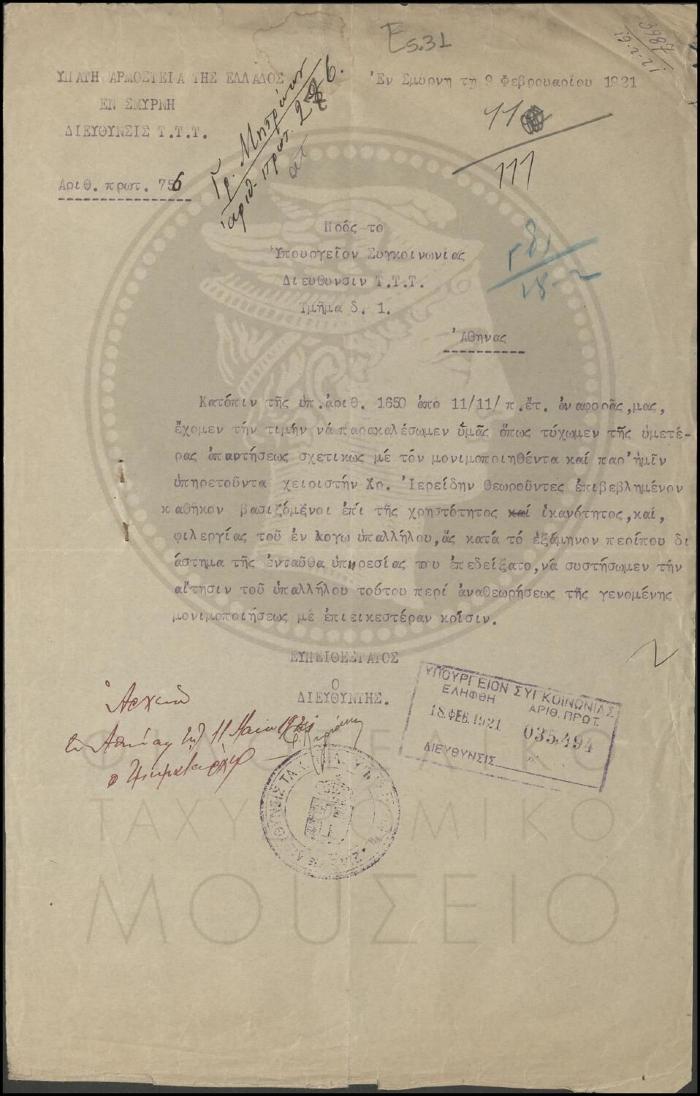 Es.31
ΥΠΑΤΗ ΑΡΜΟΣΤΕΙΑ ΤΗΣ ΕΛΛΑΔΟΣ
ΕΝ ΣΜΥΡΝΗ
ΔΙΕΥΘΥΝΣΙΣ Τ.Τ.Τ.
Ἀριθ. πρωτ. 756
Ἐν Σμύρνη τῃ 9 Φεβρουαρίου 1921
Γρ. Μητρώων
ἀριθ. πρωτ.
111
Πρὸς το
Ὑπουργεῖον Συγκοινωνίας
Διευθυνσιν Τ.Τ.Τ.
Τμῆμα δ. 1.
Ἀθηνας
Κατόπιν τῆς ὑπ.ἀριθ. 1650 ἀπὸ 11/11/ π.ἔτ. ἀναφορᾶς,μας,
ἔχομεν τὴν τιμὴν νὰ παρακαλέσωμεν ὑμᾶς ὅπως τύχωμεν τῆς ὑμετέ-
ρας ἀπαντήσεως σχετικῶς μὲ τὸν μονιμοποιηθέντα καὶ παρ'ἡμῖν
ὑπηρετοῦντα χειριστὴν Χρ. Ἱερείδην θεωροῦντες ἐπιβεβλημένον
καθῆκον βασιζόμενοι ἐπὶ τῆς χρηστότητος καὶ ἱκανότητος,καὶ,
φιλεργίας τοῦ ἐν λογω ὑπαλλήλου,ἃς κατὰ τὸ ἑξάμηνον περίπου δι
άστημα τῆς ἐνταῦθα ὑπηρεσίας του ἐπεδείξατο,νὰ συστήσωμεν τὴν
αἴτησιν τοῦ ὑπαλλήλου τούτου περὶ ἀναθεωρήσεως τῆς γενομένης
μονιμοποιήσεως μὲ ἐπιεικεστέραν κρίσιν.
ΕΥΠΕΙΘΕΣΤΑΤΟΣ
Ο
ΔΙΕΥΘΥΝΤΗΣ.
Ἀρχεῖον
ΥΠΟΥΡΓΕΙΟΝ ΣΥΓΚΟΙΝΩΝΙΑΣ
ΕΛΗΦΘΗ ΑΡΙΘ. ΠΡΩΤ.
18 ΦΕΒ. 1921 035.494
ΔΙΕΥΘΥΝΣΙΣ
ΤΑΧΥΔΡΟΜΙΚΟ
ΜΟΥΣΕΙΟ